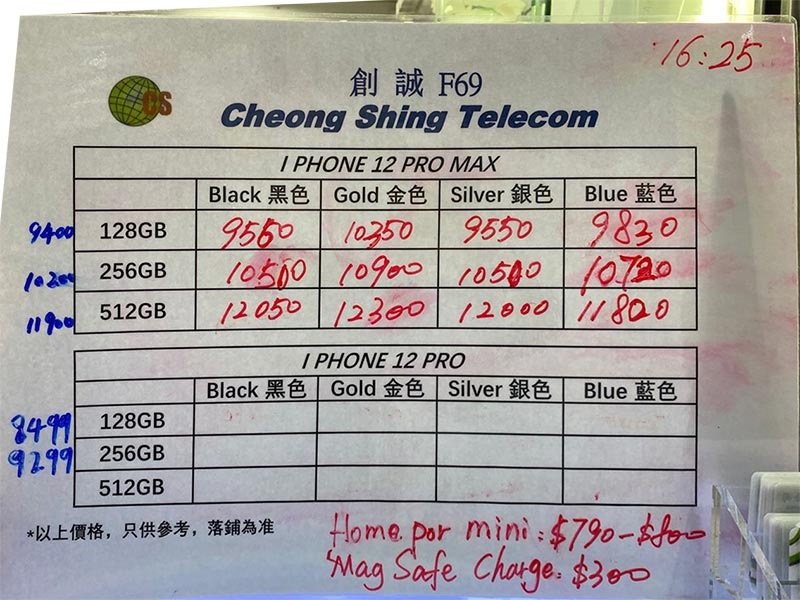 16:25
創誠 F69
CS
Cheong Shing Telecom
I PHONE 12 PRO MAX
Black 黑色 Gold 金色 Silver 銀色 Blue 藍色
9400 128GB 9550 10350 9550 9830
10200 256GB 10500 10900 10500 10720
11900 512GB 12050 12300 12000 11800
I PHONE 12 PRO
Black 黑色 Gold 金色 Silver 銀色 Blue 藍色
8499 128GB
9299 256GB
512GB
*以上價格，只供參考，落鋪為准
Home por mini: $790-$800
Mag Safe Charge: $300